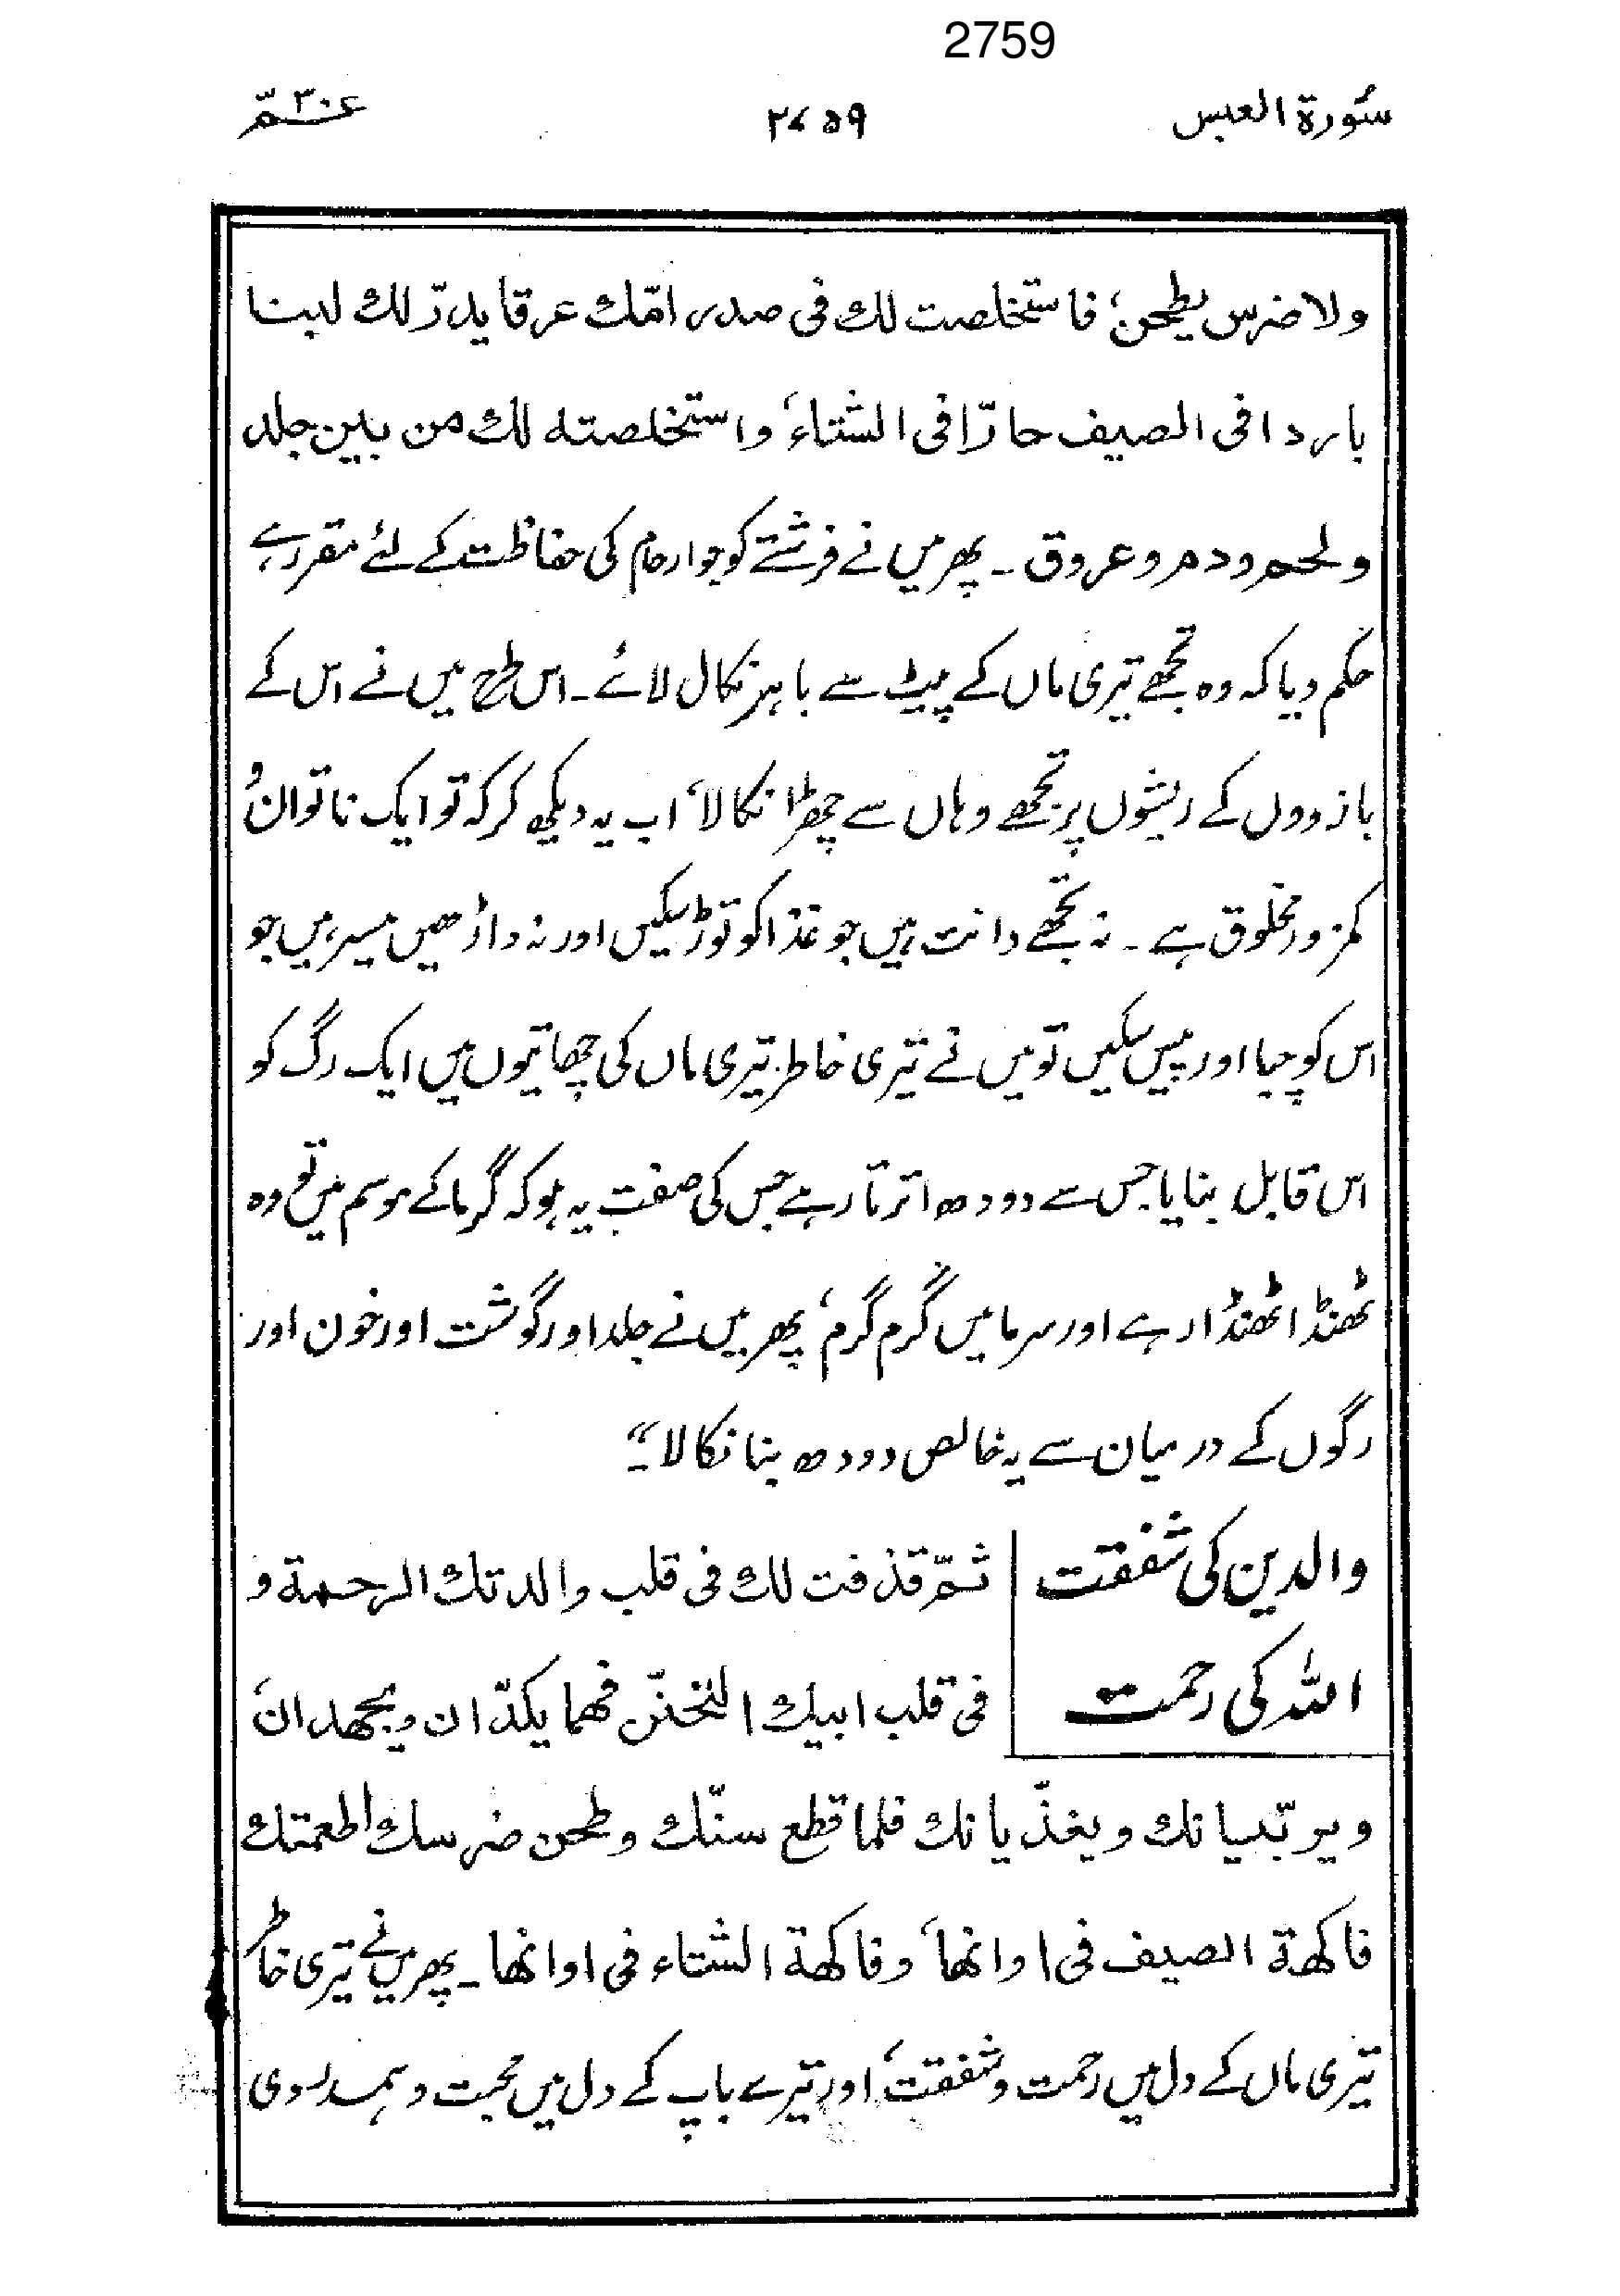 2759
سُورۃ العبس ۲۷۵۹ عمّ ۳۰
ولا ضرس یطحن، فاستخلصت لك فی صدر امّك عرقا یدرّ لك لبنا
باردا فی الصیف حارّا فی الشتاء، واستخلصتہ لك من بین جلد
ولحم ودم وعروق ۔ پھر میں نے فرشتے کو جو ارحام کی حفاظت کے لئے مقرر ہے
حکم دیا کہ وہ تجھے تیری ماں کے پیٹ سے باہر نکال لائے ۔ اس طرح میں نے اس کے
بازوں کے ریشوں پر تجھے وہاں سے چھڑا نکالا، اب یہ دیکھ کر کہ تو ایک ناتواں و
کمزور مخلوق ہے ۔ نہ تجھے دانت ہیں جو غذا کو توڑ سکیں اور نہ داڑھیں میسر ہیں جو
اس کو چبا اور پیس سکیں تو میں نے تیری خاطر تیری ماں کی چھاتیوں میں ایک رگ کو
اس قابل بنایا جس سے دودھ اترتا رہے جس کی صفت یہ ہو کہ گرما کے موسم میں تو وہ
ٹھنڈا ٹھنڈا رہے اور سرما میں گرم گرم، پھر میں نے جلد اور گوشت اور خون اور
رگوں کے درمیان سے یہ خالص دودھ بنا نکالا ۔"
والدین کی شفقت
اللہ کی رحمت
ثمّ قذفت لك فی قلب والدتك الرحمة و
فی قلب ابیك التحنّن فھما یکدّان ویجھدان،
ویربّیانك ویغذّیانك فلما قطع سنّك وطحن ضرسك اطعمتك
فاکھة الصیف فی اوانھا، وفاکھة الشتاء فی اوانھا ۔ پھر میں نے تیری خاطر
تیری ماں کے دل میں رحمت و شفقت، اور تیرے باپ کے دل میں محبت و ہمدردی